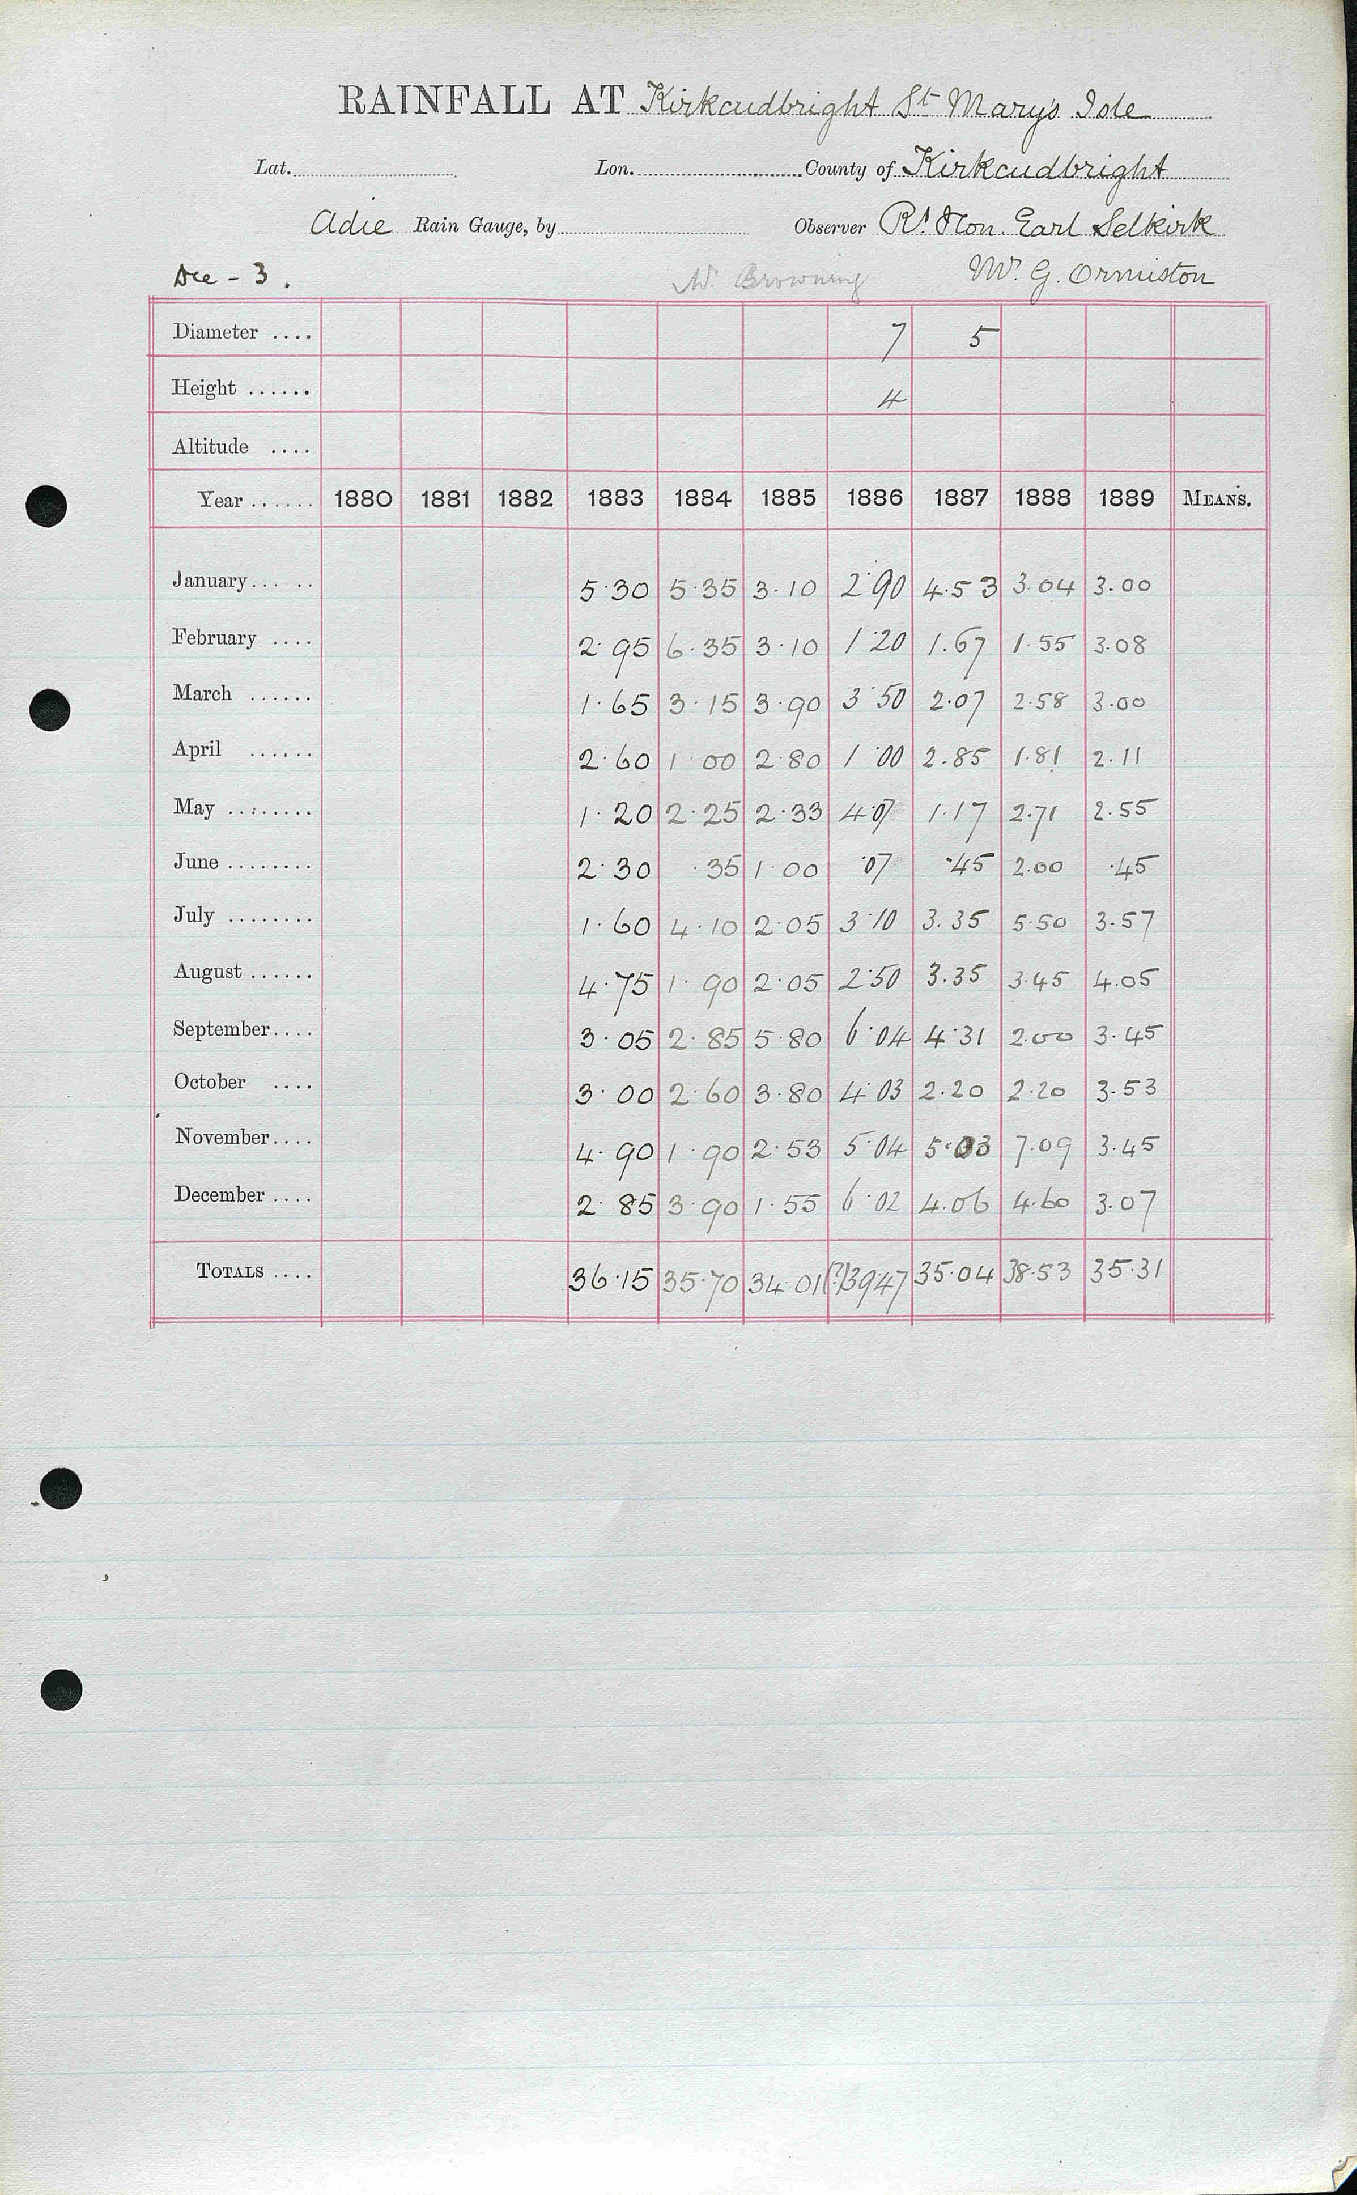 RAINFALL AT Kirkcudbright St Mary's Isle
Lat. Lon. County of Kirkcudbright
Adie Rain Gauge, by Observer Rt. Hon. Earl Selkirk
Dee - 3. W. Browning Mr. G. Ormiston
Diameter .... 7 5
Height ...... 4
Altitude ....
Year ...... 1880 1881 1882 1883 1884 1885 1886 1887 1888 1889 MEANS.
January ... .. 5·30 5·35 3·10 2·90 4.53 3.04 3.00
February .... 2·95 6·35 3·10 1·20 1.67 1·55 3.08
March ...... 1·65 3·15 3·90 3·50 2.07 2.58 3.00
April ...... 2·60 1·00 2·80 1·00 2.85 1.81 2.11
May ........ 1·20 2·25 2·33 4·07 1.17 2.71 2.55
June ........ 2·30 ·35 1·00 ·07 ·45 2.00 ·45
July ........ 1·60 4·10 2·05 3·10 3.35 5·50 3.57
August ...... 4·75 1·90 2·05 2·50 3.35 3.45 4.05
September .... 3·05 2·85 5·80 6·04 4·31 2.00 3.45
October .... 3·00 2·60 3·80 4·03 2.20 2.20 3.53
November .... 4·90 1·90 2·53 5·04 5·03 7.09 3.45
December .... 2·85 3·90 1·55 6·02 4.06 4.60 3.07
TOTALS .... 36·15 35·70 34·01 (?)39 47 35·04 38·53 35·31